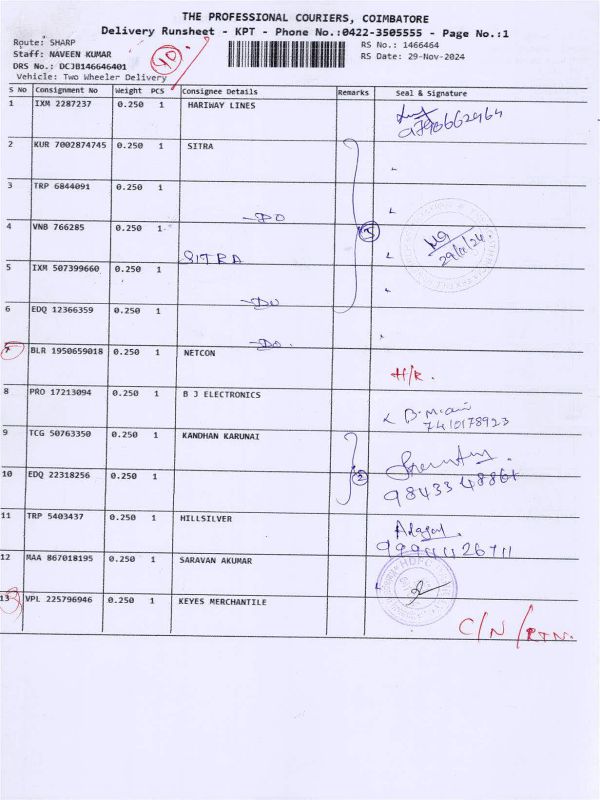 THE PROFESSIONAL COURIERS, COIMBATORE
Delivery Runsheet - KPT - Phone No.:0422-3505555 - Page No.:1
Route: SHARP
Staff: NAVEEN KUMAR
DRS No.: DCJB146646401
Vehicle: Two Wheeler Delivery
RS No.: 1466464
RS Date: 29-Nov-2024
S No Consignment No Weight PCS Consignee Details Remarks Seal & Signature
1 IXM 2287237 0.250 1 HARIWAY LINES
2 KUR 7002874745 0.250 1 SITRA
3 TRP 6844091 0.250 1
-DO
4 VNB 766285 0.250 1 SITRA
5 IXM 507399660 0.250 1
29/11/24
5
6 EDQ 12366359 0.250 1
-DO
-DO.
7 BLR 1950659018 0.250 1 NETCON
H/R.
8 PRO 17213094 0.250 1 B J ELECTRONICS
7410178923
9 TCG 50763350 0.250 1 KANDHAN KARUNAI
10 EDQ 22318256 0.250 1 2
9843348861
11 TRP 5403437 0.250 1 HILLSILVER
9994426711
12 MAA 867018195 0.250 1 SARAVAN AKUMAR
HDFC
13 VPL 225796946 0.250 1 KEYES MERCHANTILE
C/N/RTN.